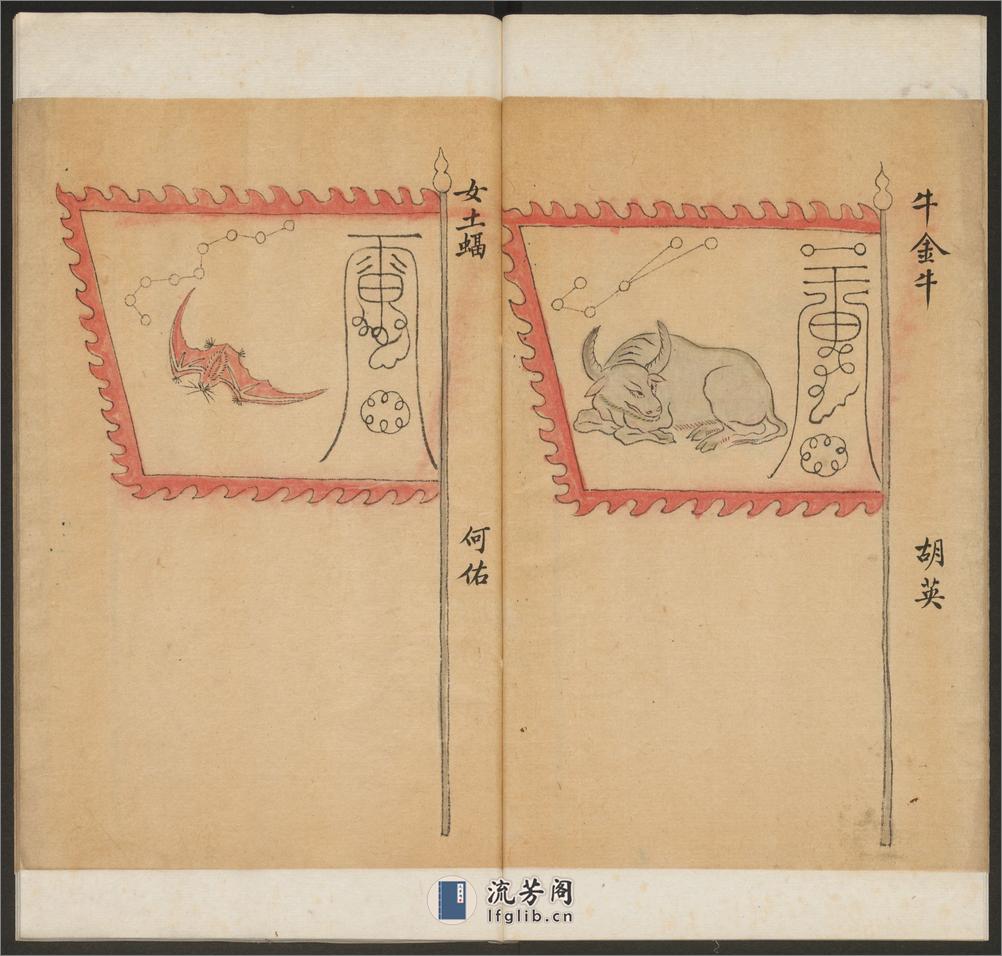 牛金牛
胡英
女土蝠
何佑
流芳阁
lfglib.cn